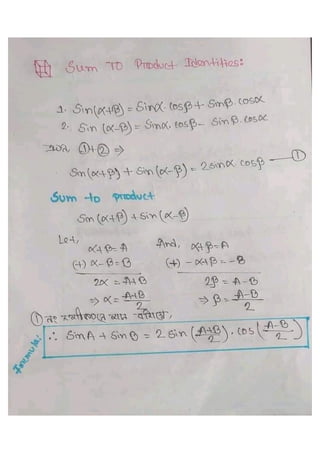 Sum TO Product Identities:
1. Sin(α+β) = Sinα. Cosβ + Sinβ. Cosα
2. Sin (α-β) = Sinα. Cosβ - Sinβ. Cosα
এখন ①+② ⇒
Sin(α+β) + Sin(α-β) = 2Sinα. Cosβ — ①
Sum -to product
Sin (α+β) + Sin (α-β)
Let, α+β = A And, α+β = A
(+) α-β = B (+) - α+β = -B
2α = A+B 2β = A-B
⇒ α = A+B/2 ⇒ β = A-B/2
① নং সমীকরণে মান বসিয়ে,
Formula: ∴ SinA + SinB = 2 Sin (A+B/2). Cos (A-B/2)